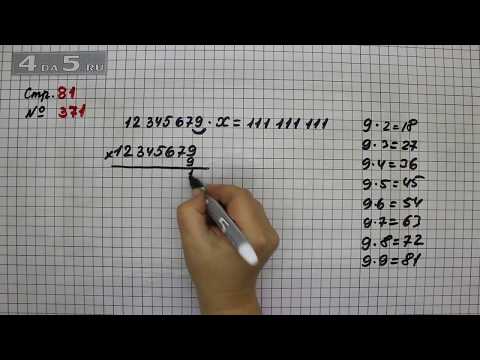 4 DA 5 RU
Стр. 81
№ 371
12 345 679 · x = 111 111 111
x 12 345 679
9
1
9 · 2 = 18
9 · 3 = 27
9 · 4 = 36
9 · 5 = 45
9 · 6 = 54
9 · 7 = 63
9 · 8 = 72
9 · 9 = 81